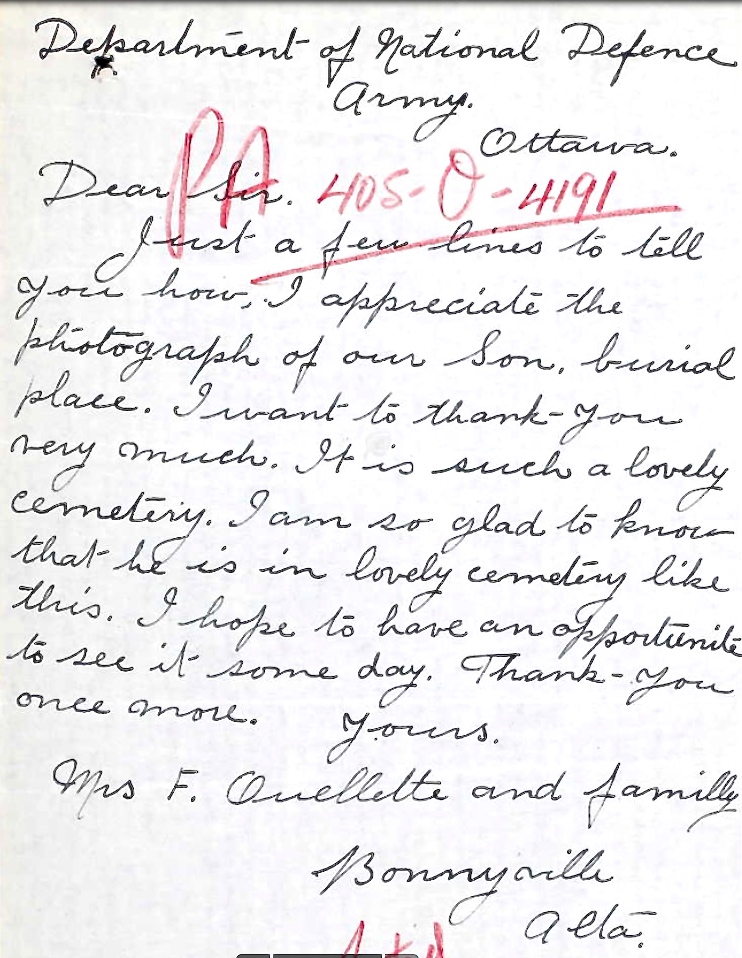 Department of National Defence
Army.
Ottawa.
Dear Sir.
PA 405-O-4191
Just a few lines to tell
you how, I appreciate the
photograph of our Son, burial
place. I want to thank-you
very much. It is such a lovely
cemetery. I am so glad to know
that he is in lovely cemetery like
this. I hope to have an opportunité
to see it some day. Thank-you
once more.
Yours.
Mrs F. Ouellette and familly
Bonnyville
Alta.